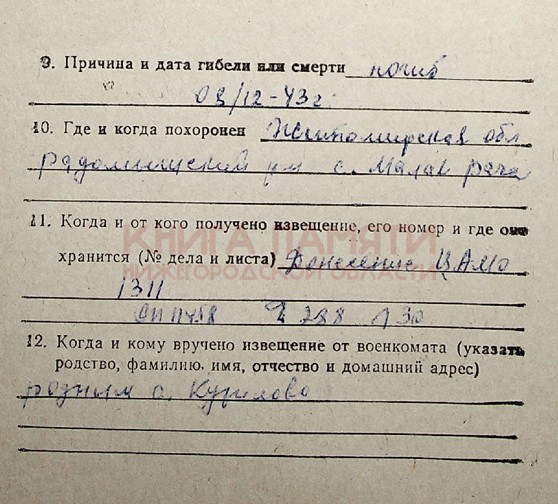 9. Причина и дата гибели или смерти погиб
08/12-43г
10. Где и когда похоронен Житомирская обл
радомишский р-н с. Малая рача
11. Когда и от кого получено извещение, его номер и где оно
КНИГА ПАМЯТИ
хранится (№ дела и листа) Донесение ЦАМО
НИЖЕГОРОДСКОЙ ОБЛАСТИ
1311
оп 11458 д 288 л 30
12. Когда и кому вручено извещение от военкомата (указать
родство, фамилию, имя, отчество и домашний адрес)
родным с. Курилово